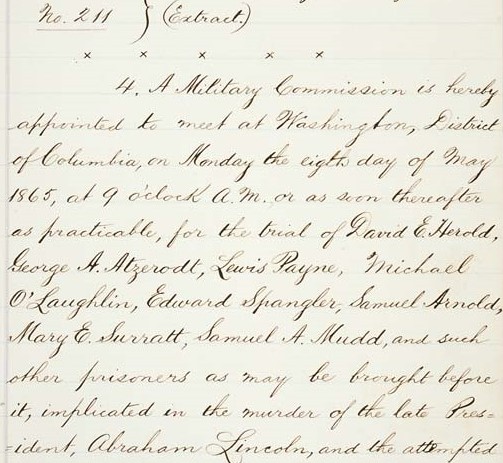 No. 211 } (Extract.)
x x x x x
4. A Military Commission is hereby
appointed to meet at Washington, District
of Columbia, on Monday the eigth day of May
1865, at 9 o'clock A.M. or as soon thereafter
as practicable, for the trial of David E. Herold,
George A. Atzerodt, Lewis Payne, Michael
O'Laughlin, Edward Spangler, Samuel Arnold,
Mary E. Surratt, Samuel A. Mudd, and such
other prisoners as may be brought before
it, implicated in the murder of the late Pres=
=ident, Abraham Lincoln, and the attempted